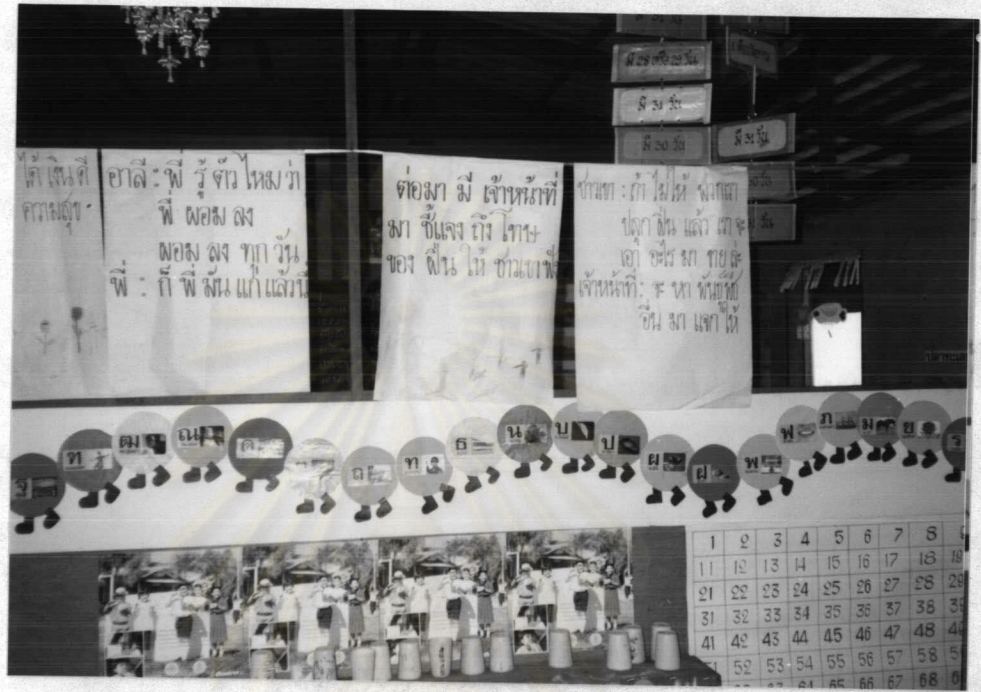 มี 31 วัน
มี 28 หรือ 29 วัน
มี 31 วัน
มี 30 วัน
มี 31 วัน
ได้ เงิน ดี
ความสุข
อาลี : พี่ รู้ ตัว ไหม ว่า
พี่ ผอม ลง
ผอม ลง ทุก วัน
พี่ : ก็ พี่ มัน แก่ แล้ว นี่
ต่อมา มี เจ้าหน้าที่
มา ชี้แจง ถึง โทษ
ของ ฝิ่น ให้ ชาวเขา ฟัง
ชาวเขา : ถ้า ไม่ให้ พวกเรา
ปลูก ฝิ่น แล้ว เรา จะ
เอา อะไร มา ขาย ล่ะ
เจ้าหน้าที่ : จะ หา พันธุ์พืช
อื่น มา แจก ให้
ฐ ฑ ฒ ณ ด ถ ท ธ น บ ป ผ ฝ พ ฟ ภ ม ย ร
1 2 3 4 5 6 7 8
11 12 13 14 15 16 17 18 19
21 22 23 24 25 26 27 28 29
31 32 33 34 35 36 37 38 39
41 42 43 44 45 46 47 48
52 53 54 55 56 57 58
64 65 66 67 68